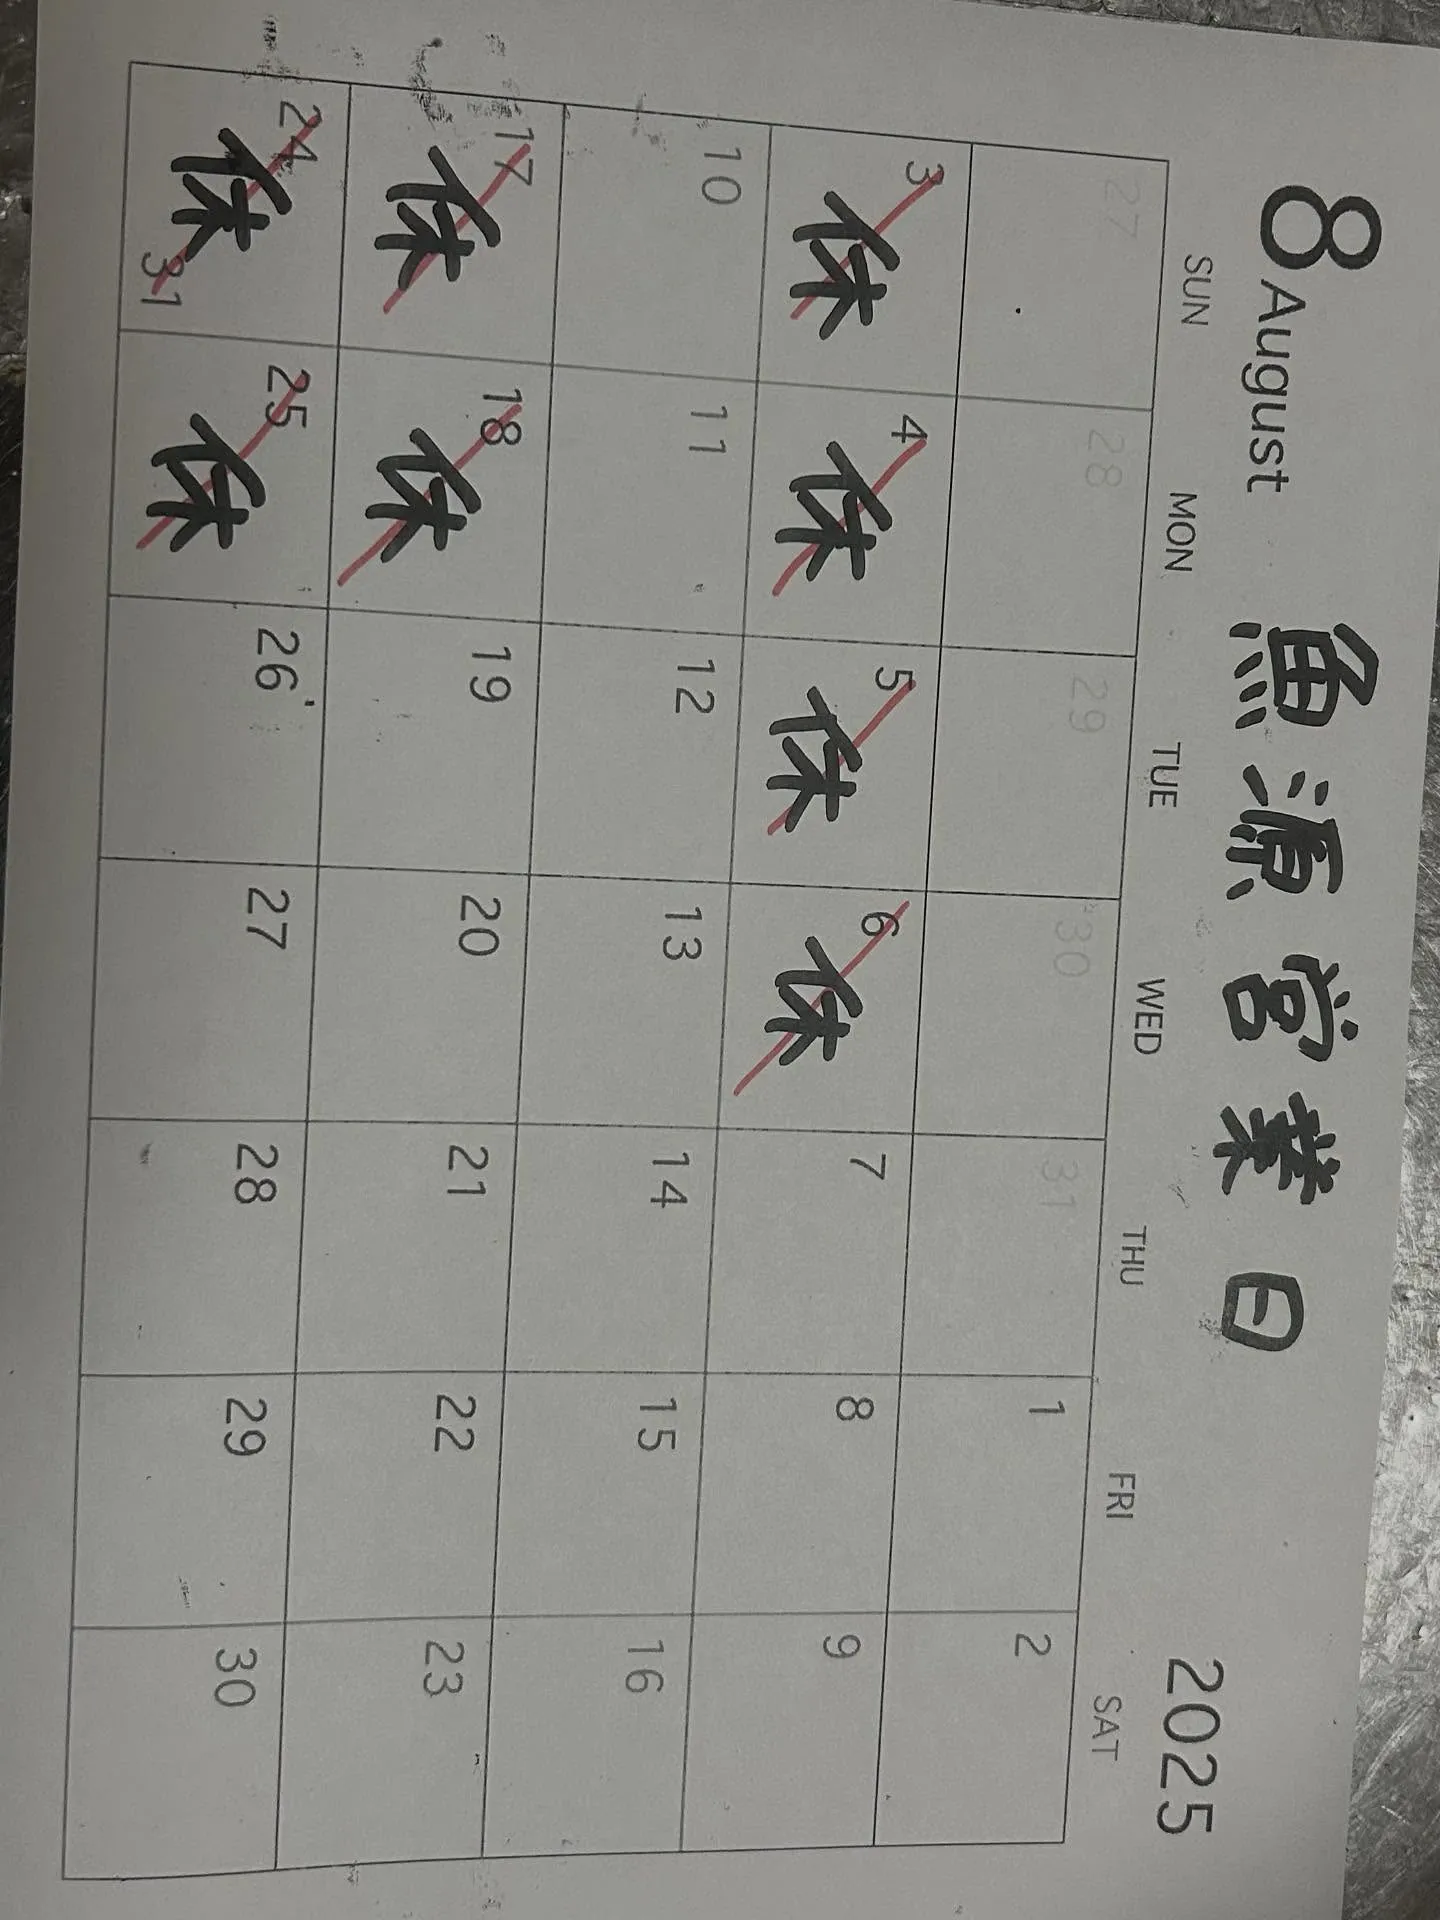 8 August 魚源 営業日 2025
SUN MON TUE WED THU FRI SAT
27 28 29 30 31 1 2
3 4 5 6 7 8 9
休 休 休 休
10 11 12 13 14 15 16
17 18 19 20 21 22 23
休 休
24 25 26 27 28 29 30
休 休
31